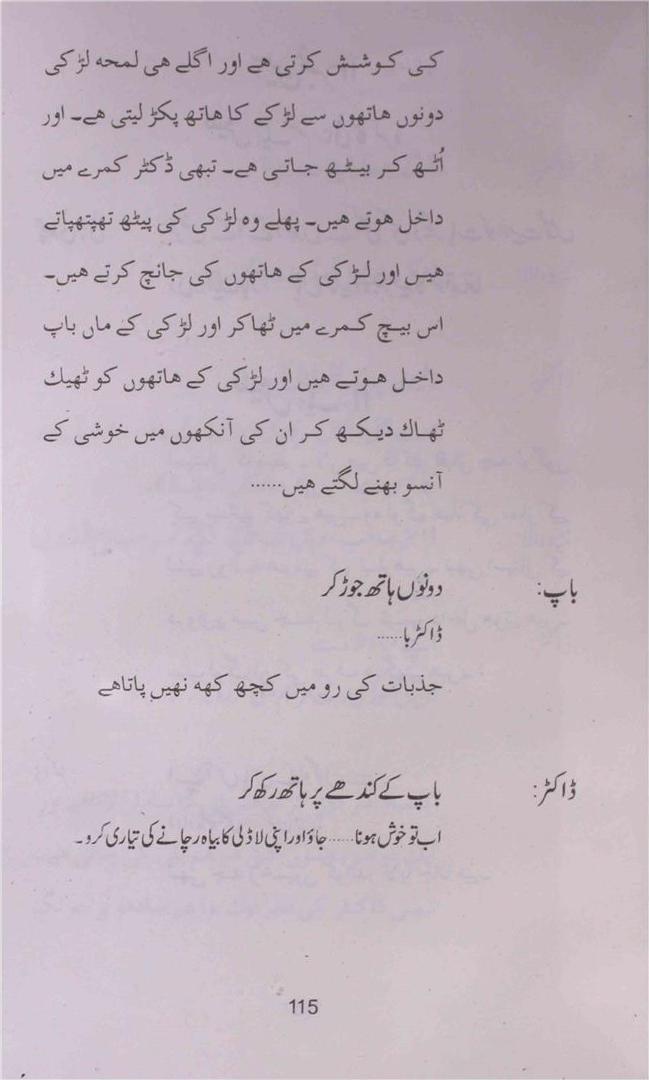 کی کوشش کرتی ھے اور اگلے ھی لمحه لڑکی
دونوں ھاتھوں سے لڑکے کا ھاتھ پکڑ لیتی ھے۔ اور
اُٹھ کر بیٹھ جاتی ھے۔ تبھی ڈکٹر کمرے میں
داخل ھوتے ھیں۔ پھلے وہ لڑکی کی پیٹھ تھپتھپاتے
ھیں اور لڑکی کے ھاتھوں کی جانچ کرتے ھیں۔
اس بیچ کمرے میں ٹھاکر اور لڑکی کے ماں باپ
داخل ھوتے ھیں اور لڑکی کے ھاتھوں کو ٹھیك
ٹھاك دیکھ کر ان کی آنکھوں میں خوشی کے
آنسو بھنے لگتے ھیں......
باپ: دونوں ہاتھ جوڑ کر
ڈاکٹر با......
جذبات کی رو میں کچھ کھه نھیں پاتاھے
ڈاکٹر: باپ کے کندھے پر ہاتھ رکھ کر
اب تو خوش ہونا...... جاؤ اور اپنی لاڈلی کا بیاہ رچانے کی تیاری کرو۔
115